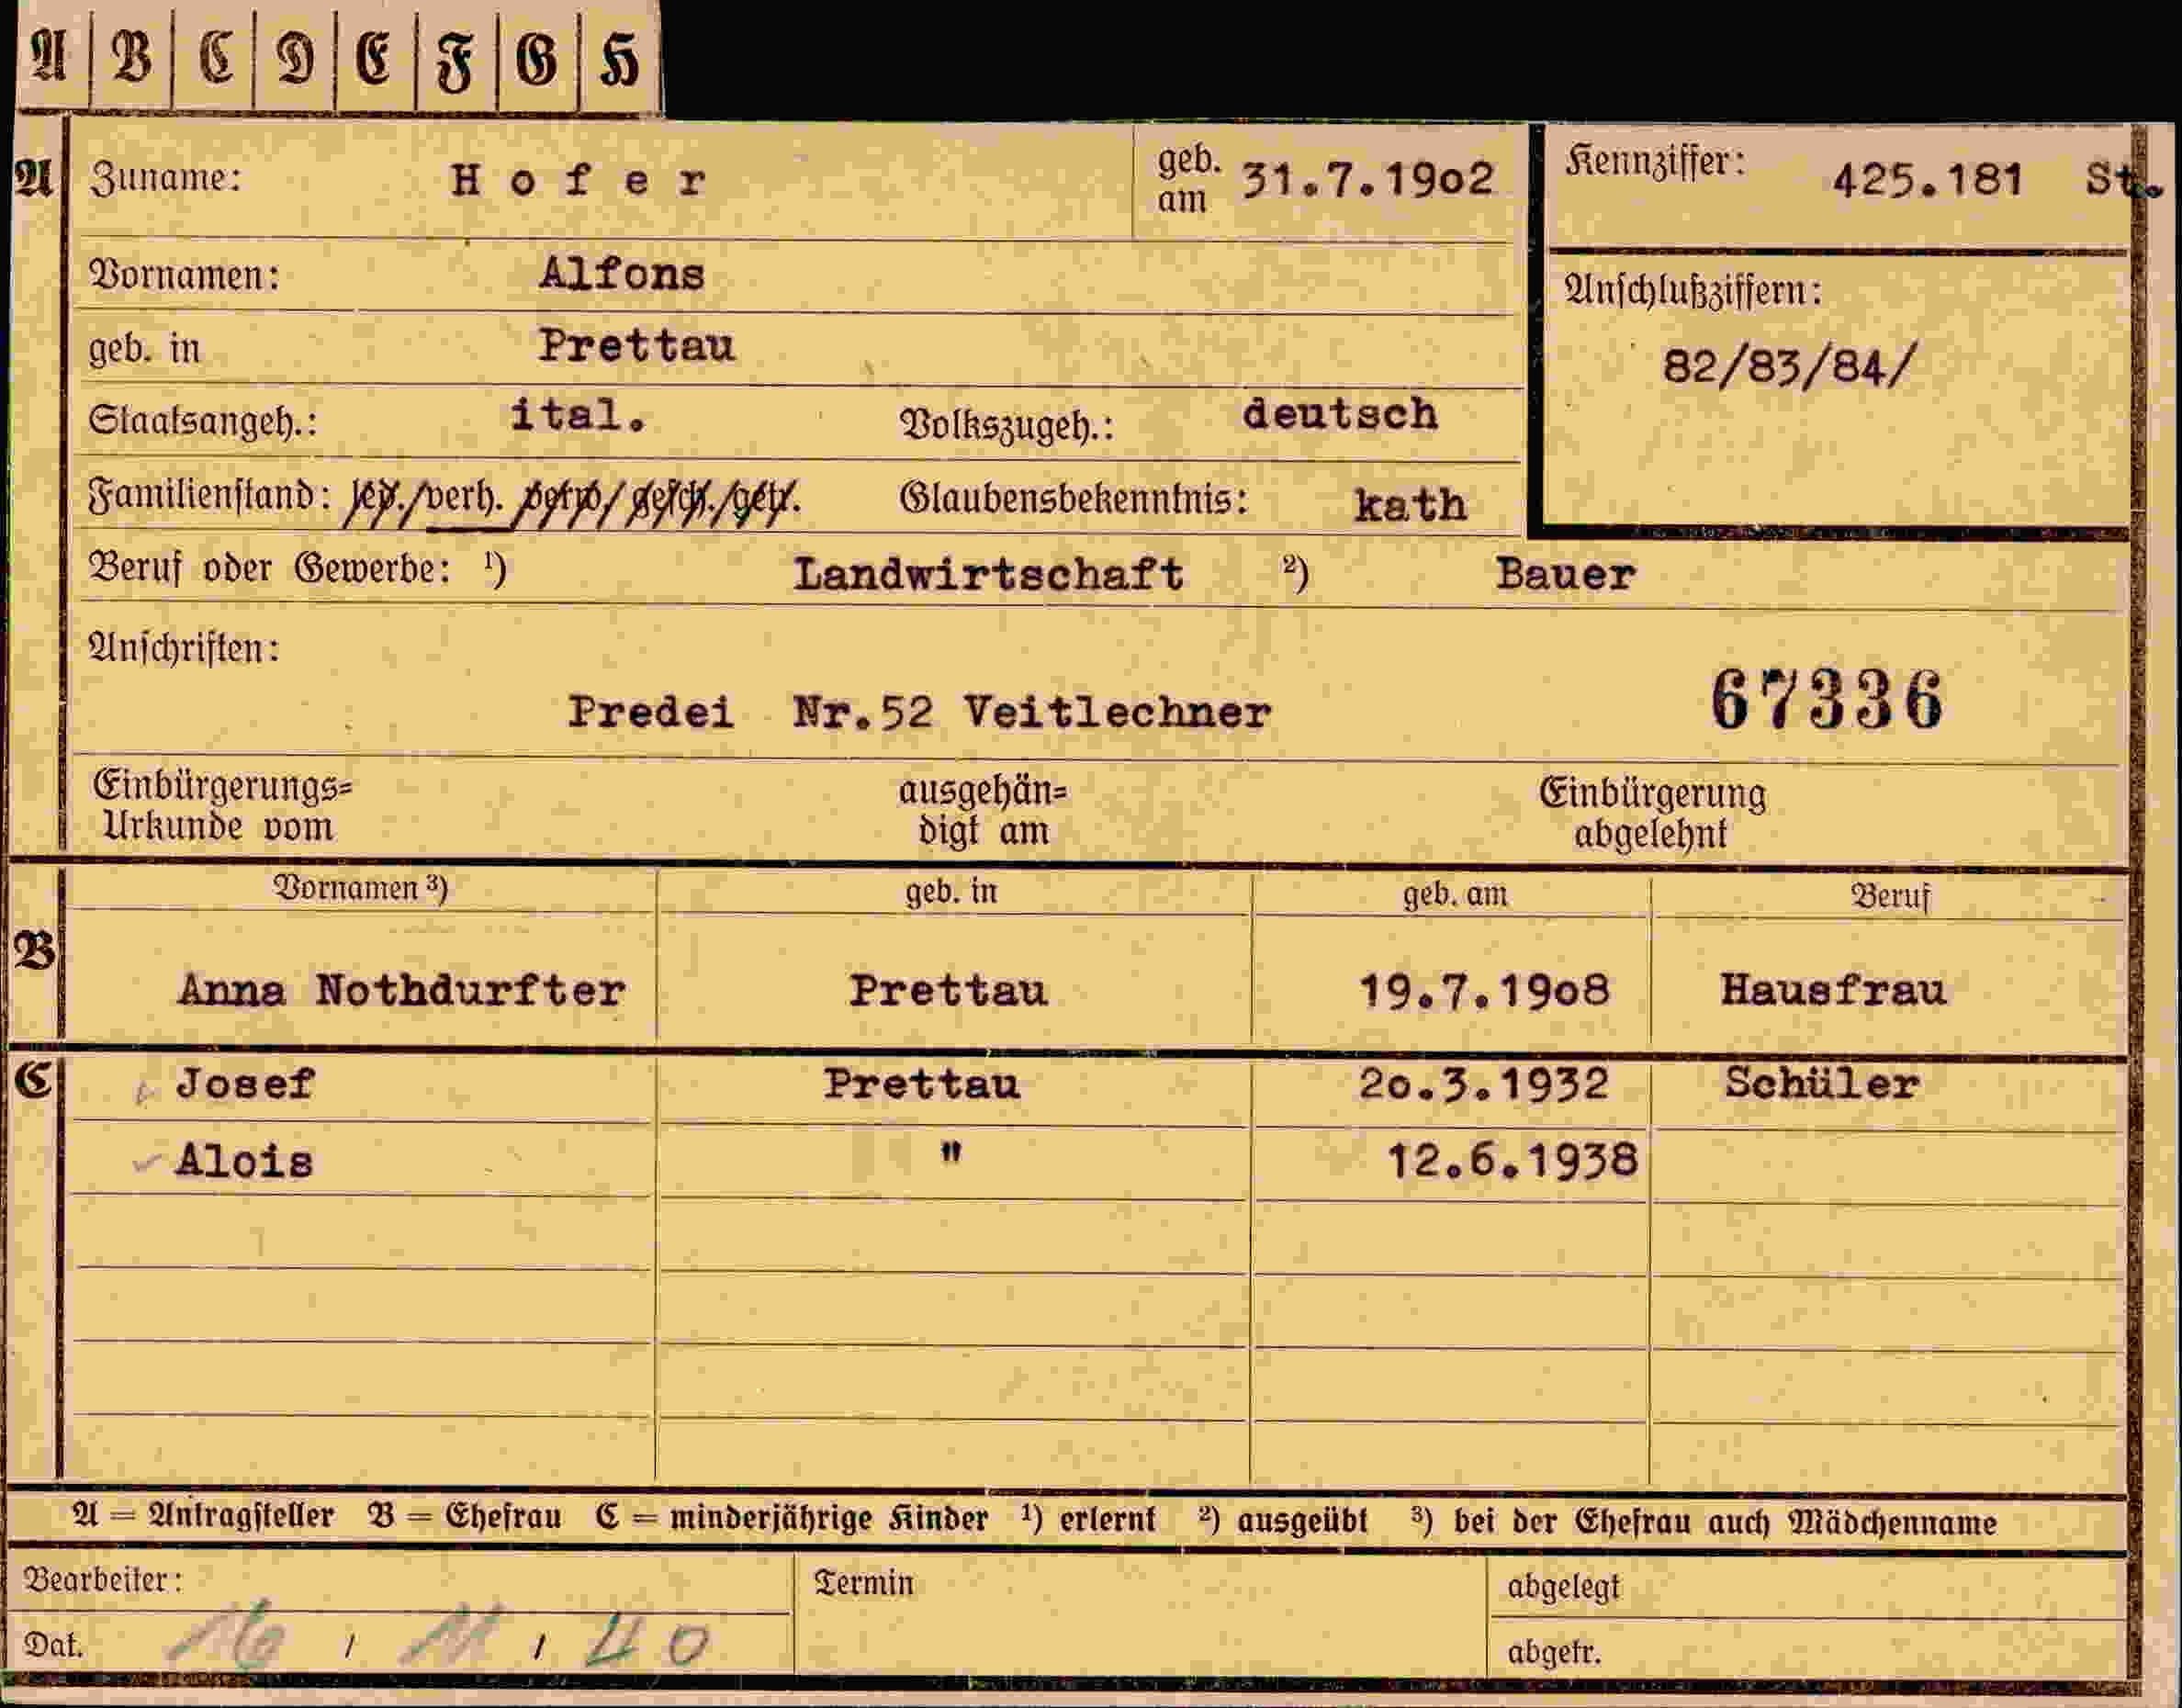 A B C D E F G H
A Zuname: Hofer geb. am 31.7.19o2 Kennziffer: 425.181 St.
Vornamen: Alfons Anschlußziffern:
geb. in Prettau 82/83/84/
Staatsangeh.: ital. Volkszugeh.: deutsch
Familienstand: led./verh. verw/gesch./getr. Glaubensbekenntnis: kath
Beruf oder Gewerbe: 1) Landwirtschaft 2) Bauer
Anschriften:
Predei Nr.52 Veitlechner 67336
Einbürgerungs= ausgehän= Einbürgerung
Urkunde vom digt am abgelehnt
Vornamen 3) geb. in geb. am Beruf
B Anna Nothdurfter Prettau 19.7.19o8 Hausfrau
C Josef Prettau 2o.3.1932 Schüler
Alois " 12.6.1938
A = Antragsteller B = Ehefrau C = minderjährige Kinder 1) erlernt 2) ausgeübt 3) bei der Ehefrau auch Mädchenname
Bearbeiter: Termin abgelegt
Dat. 16 / 11 / 40 abgetr.